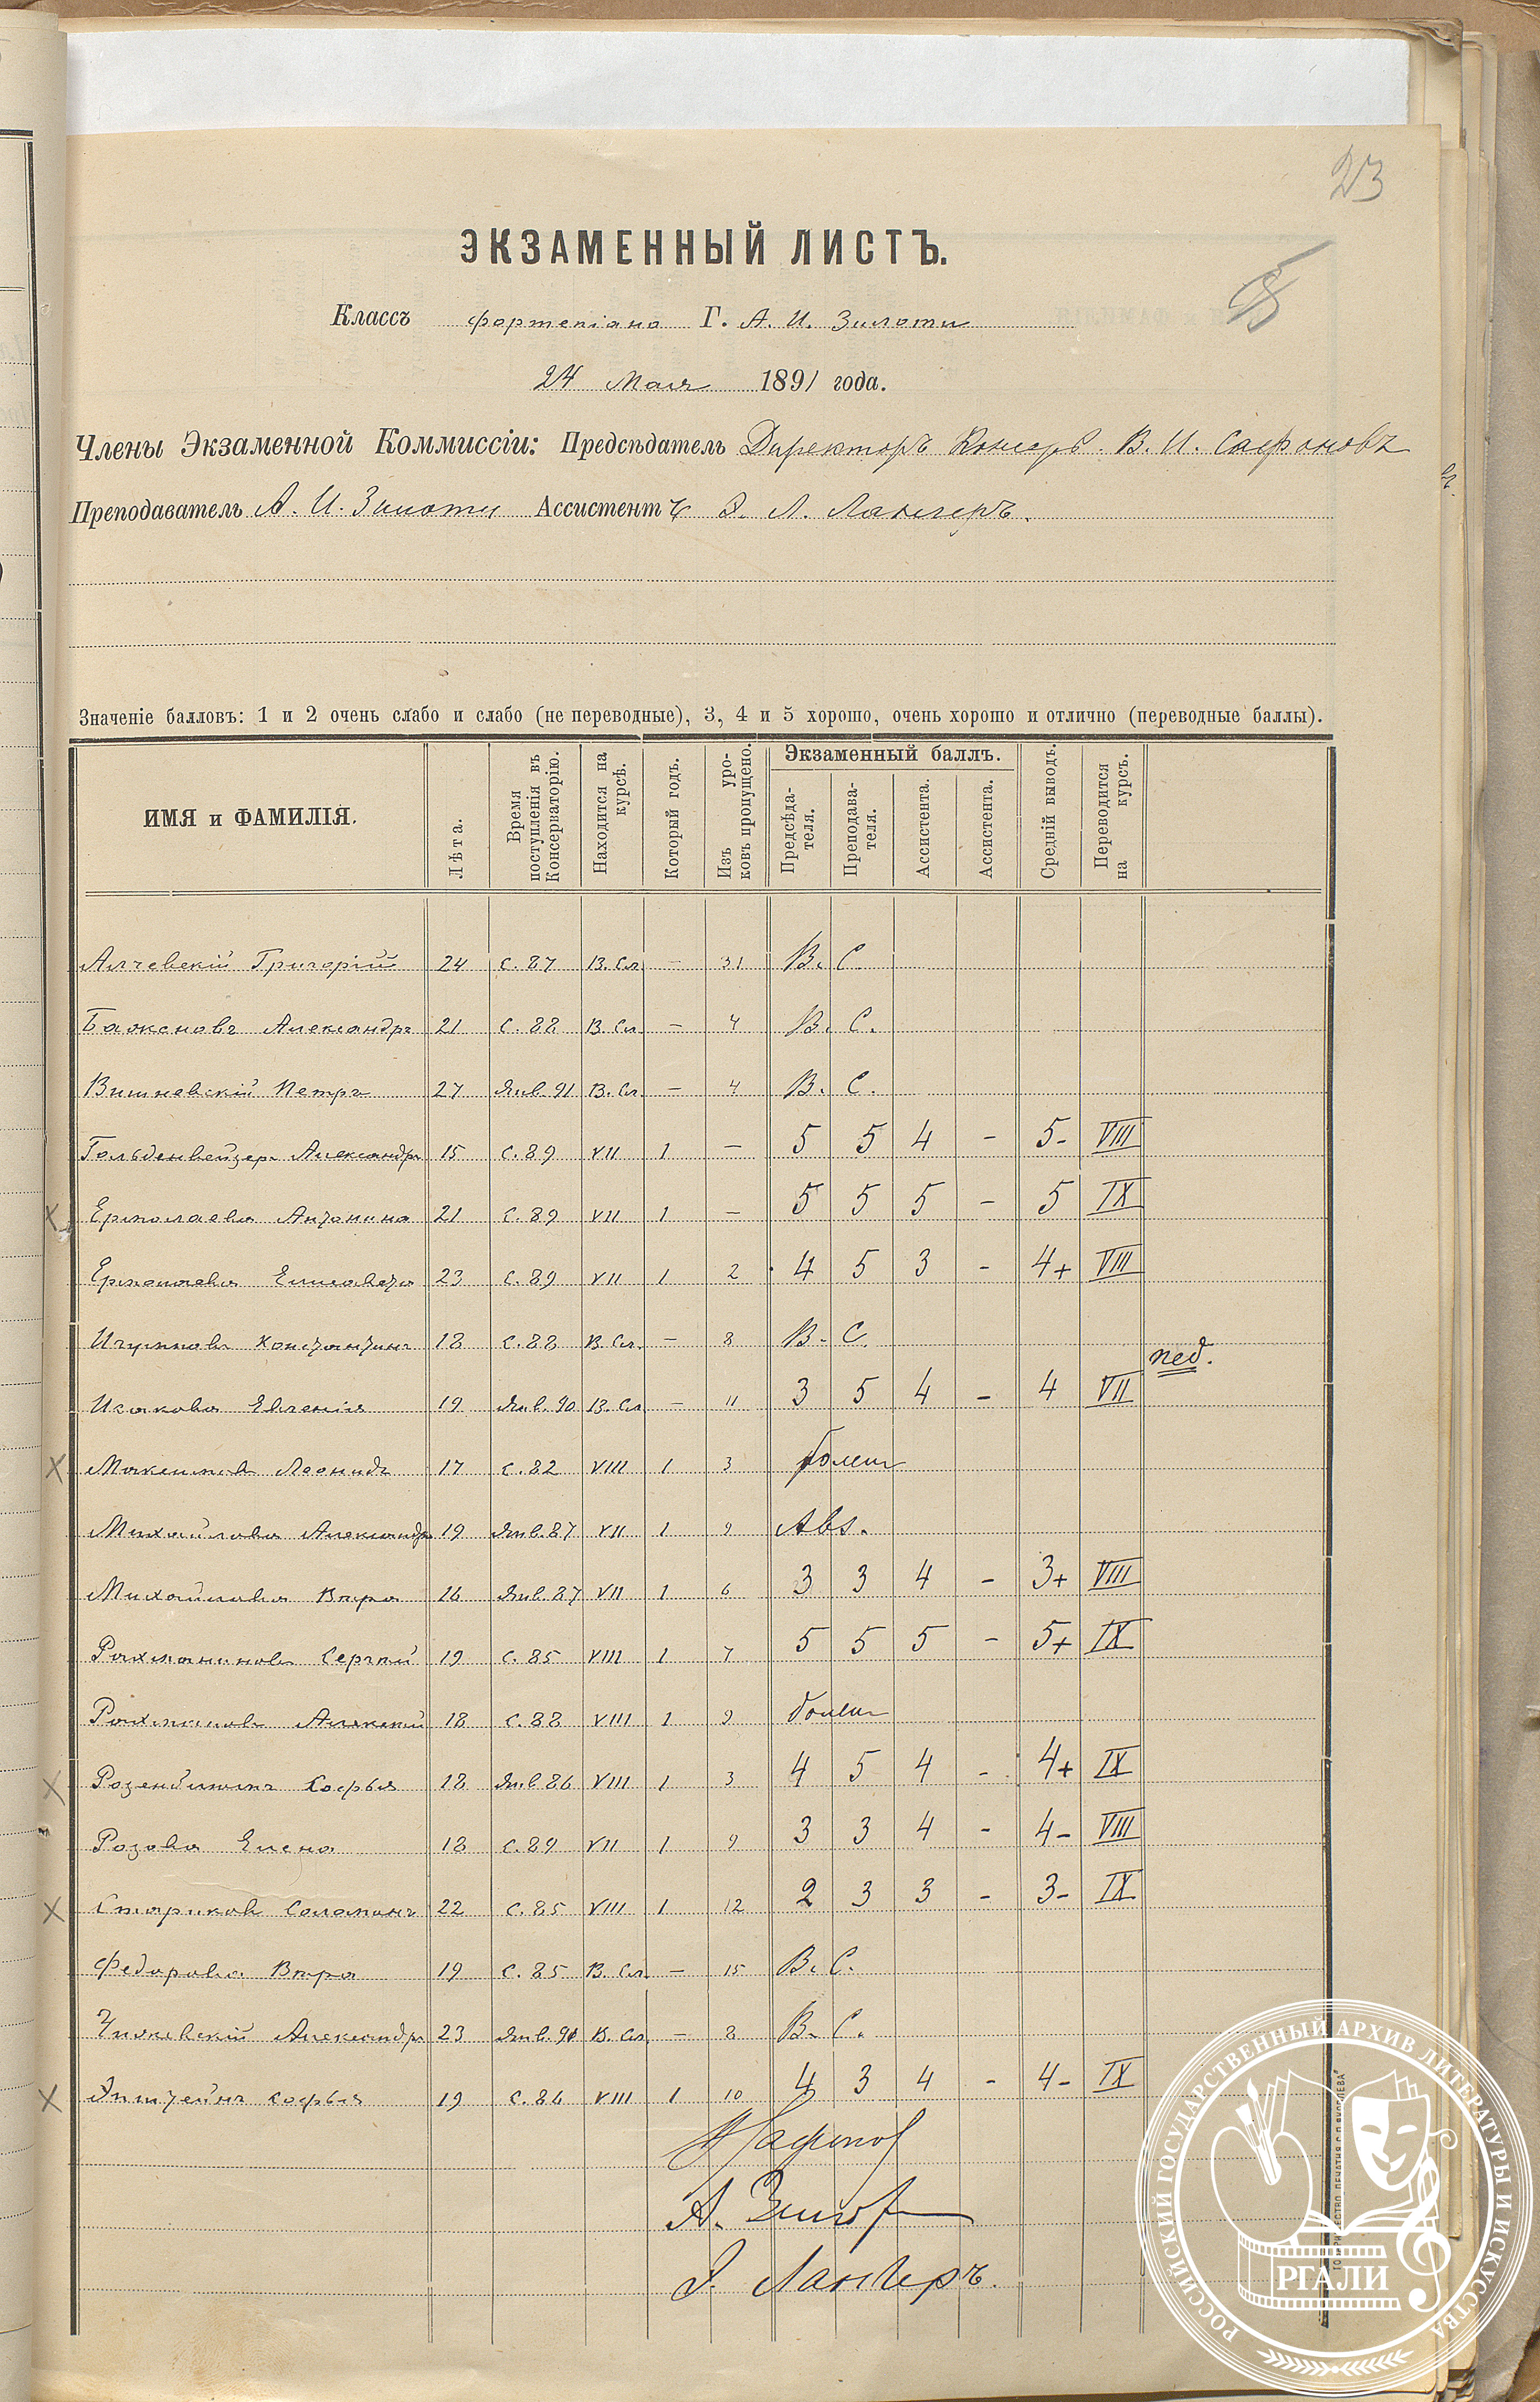 23
ЭКЗАМЕННЫЙ ЛИСТЪ.
Классъ фортепіано Г. А. И. Зилоти
24 Мая 1891 года.
Члены Экзаменной Коммиссіи: Предсѣдатель Директоръ Консерв. В. И. Сафоновъ
Преподаватель А. И. Зилоти Ассистентъ Э. Л. Лангеръ.
Значеніе балловъ: 1 и 2 очень слабо и слабо (не переводные), 3, 4 и 5 хорошо, очень хорошо и отлично (переводные баллы).
ИМЯ и ФАМИЛІЯ. Лѣта. Время поступленія въ Консерваторію. Находится на курсѣ. Который годъ. Изъ уроковъ пропущено. Экзаменный баллъ. Предсѣдателя. Преподавателя. Ассистента. Ассистента. Средній выводъ. Переводится на курсъ.
Алчевскій Григорій 24 С. 87 В. Сл. — 31 В. С.
Баженовъ Александръ 21 С. 88 В. Сл. — 4 В. С.
Вишневскій Петръ 27 Янв. 91 В. Сл. — 4 В. С.
Гольденвейзеръ Александръ 15 С. 89 VII 1 — 5 5 4 – 5- VIII
Ермолаева Антонина 21 С. 89 VII 1 — 5 5 5 – 5 IX
Ермолаева Елисавета 23 С. 89 VII 1 2 4 5 3 – 4+ VIII
Игумновъ Константинъ 18 С. 88 В. Сл. — 8 В. С.
Исакова Евгенія 19 Янв. 90 В. Сл. — 11 3 5 4 – 4 VII пед.
Максимовъ Леонидъ 17 С. 82 VIII 1 3 болен
Михайлова Александра 19 Янв. 87 VII 1 9 Abs.
Михайлова Вѣра 16 Янв. 87 VII 1 6 3 3 4 – 3+ VIII
Рахманиновъ Сергѣй 19 С. 85 VIII 1 7 5 5 5 – 5+ IX
Рахманов Алексѣй 18 С. 88 VIII 1 9 болен
Розенблюмъ Софья 18 Янв 86 VIII 1 3 4 5 4 – 4+ IX
Розова Елена 18 С. 89 VII 1 9 3 3 4 – 4- VIII
Стариков Соломонъ 22 С. 85 VIII 1 12 2 3 3 – 3- IX
Федорова Вѣра 19 С. 85 В. Сл. — 15 В. С.
Чижевскій Александръ 23 Янв. 90 В. Сл. — 8 В. С.
Эпштейнъ Софья 19 С. 86 VIII 1 10 4 3 4 – 4- IX
Сафонов
А. Зилоти
Э. Лангеръ.
РОССИЙСКИЙ ГОСУДАРСТВЕННЫЙ АРХИВ ЛИТЕРАТУРЫ И ИСКУССТВА
РГАЛИ